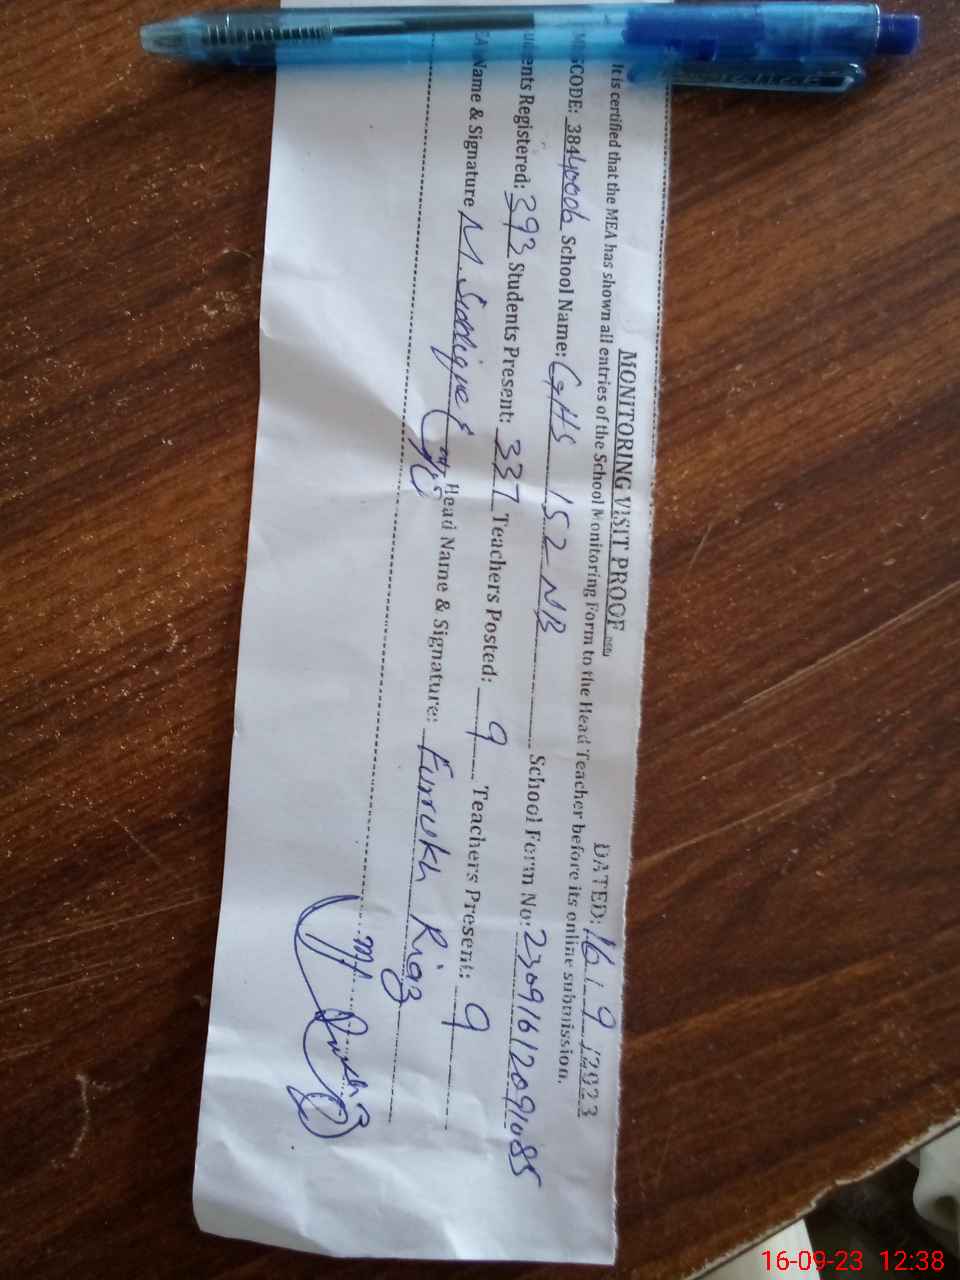 MONITORING VISIT PROOF
DATED: 16 / 9 / 2023
It is certified that the MEA has shown all entries of the School Monitoring Form to the Head Teacher before its online submission.
CODE: 38440006 School Name: GHS 152-NB School Form No: 23091612091085
Registered: 393 Students Present: 337 Teachers Posted: 9 Teachers Present: 9
Name & Signature M. Siddique Head Name & Signature: Furrukh Riaz
16-09-23 12:38